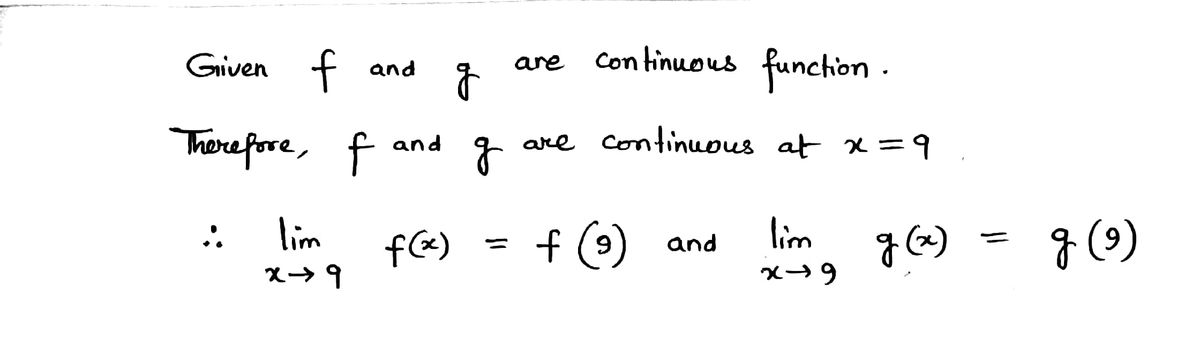 Given f and g are continuous function.
Therefore, f and g are continuous at x = 9
∴ lim x→9 f(x) = f(9) and lim x→9 g(x) = g(9)